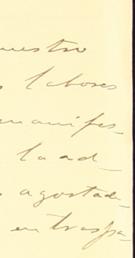 nuestro
s labores
manifes-
la ad-
s agostade
en traspa-